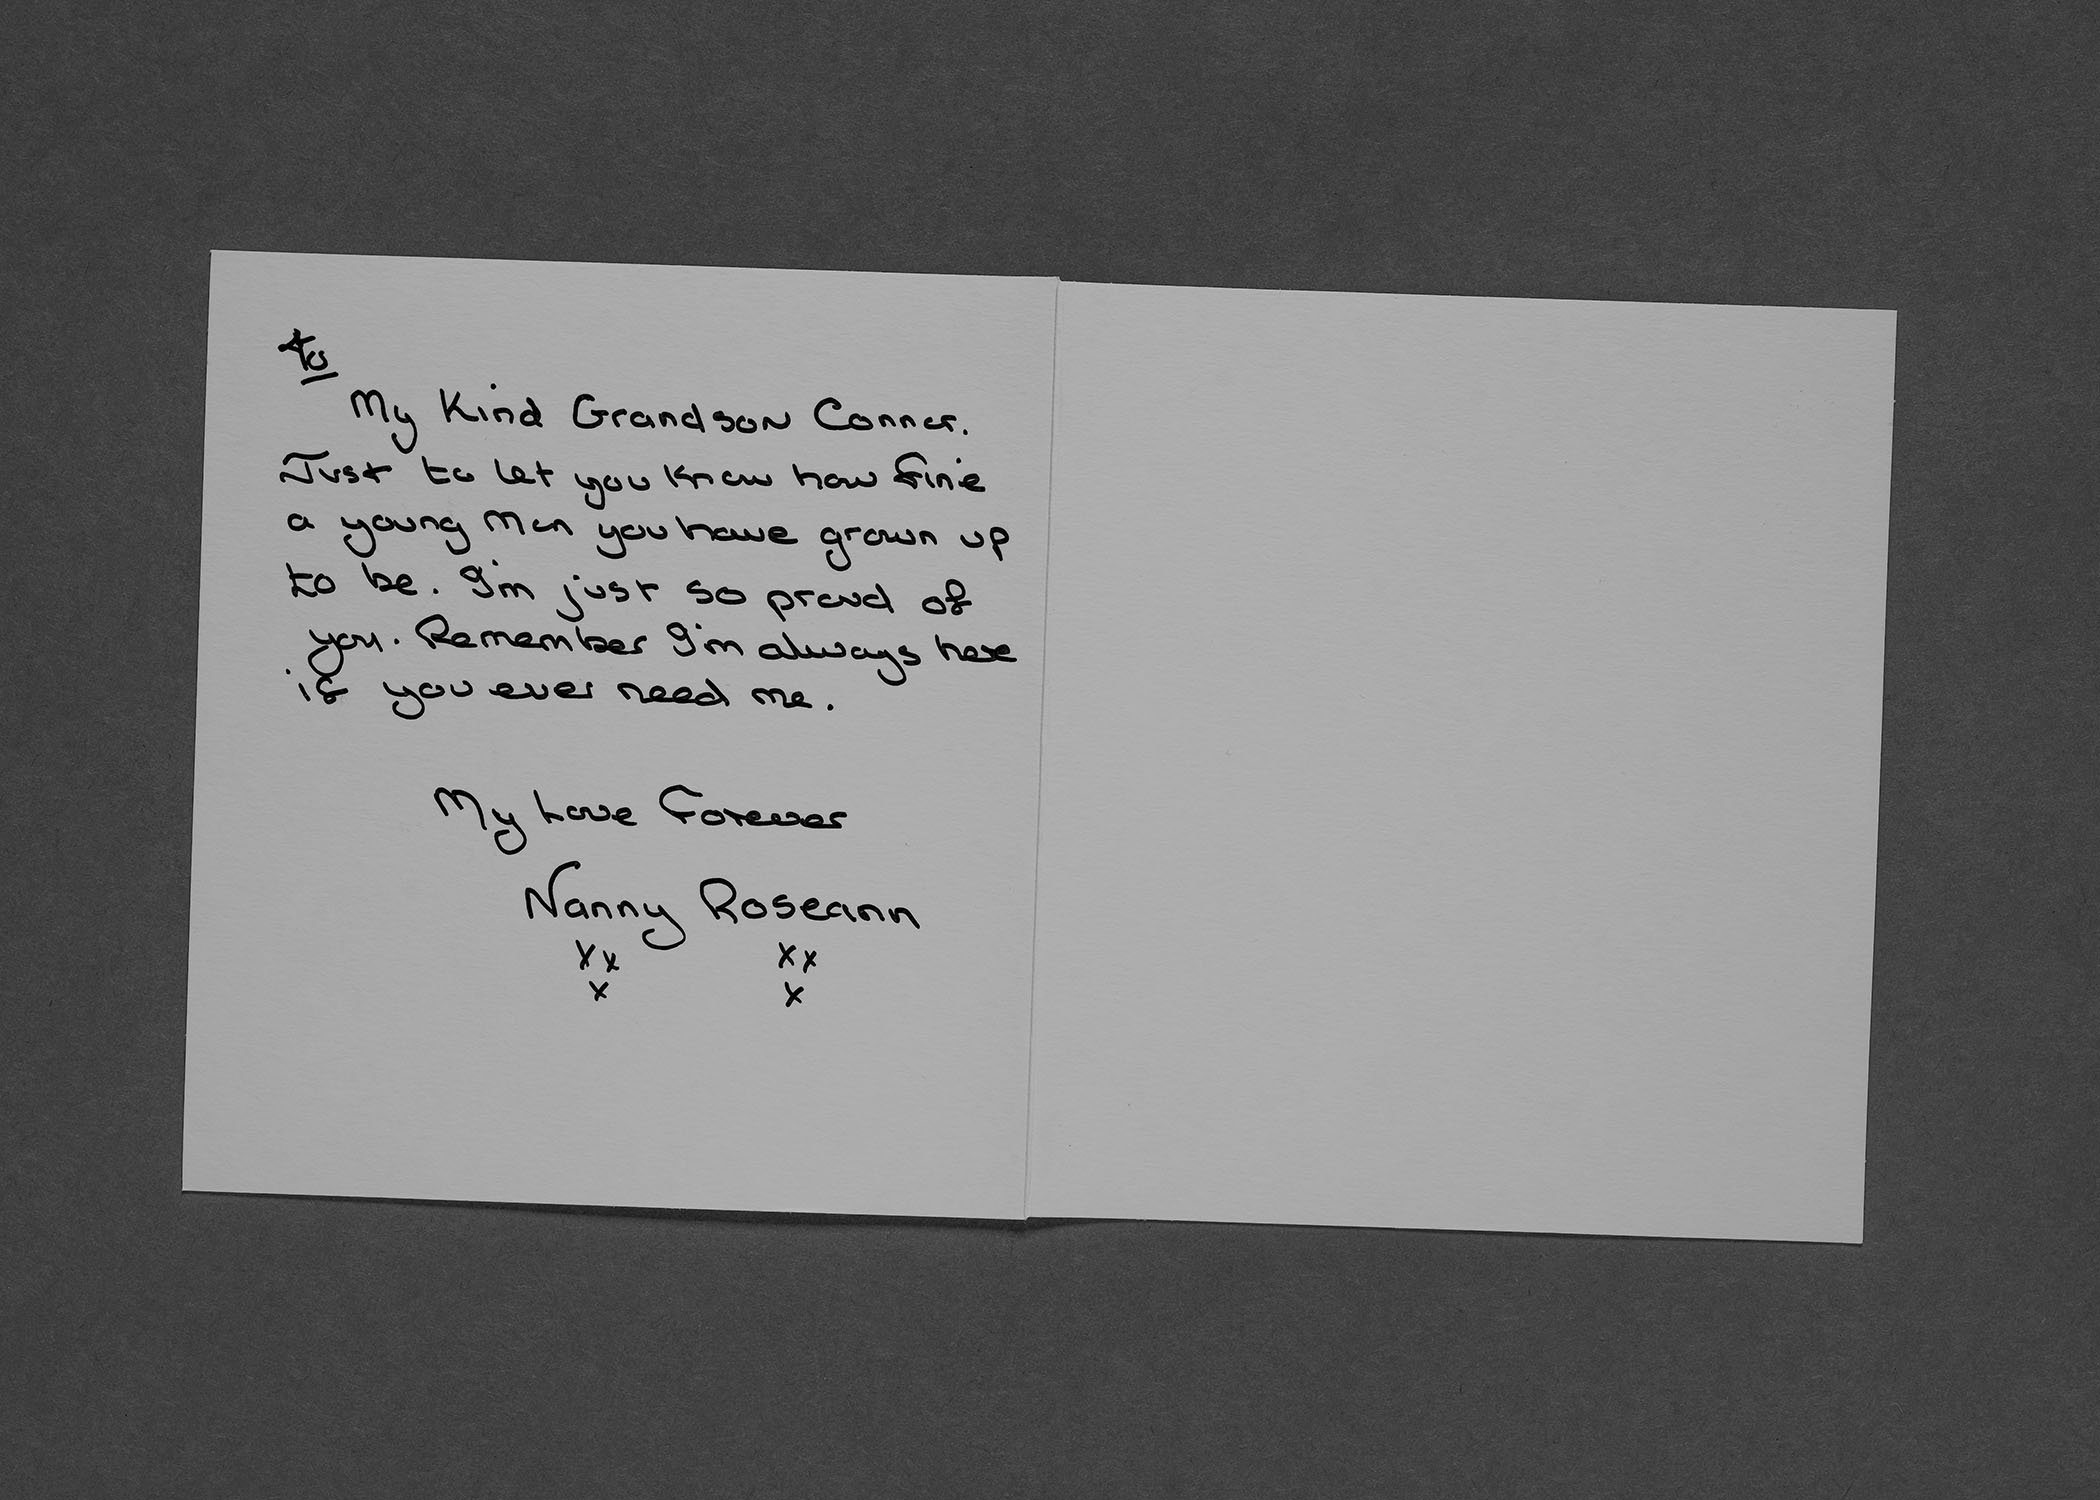 to
My Kind Grandson Conner.
Just to let you know how fine
a young man you have grown up
to be. I'm just so proud of
you. Remember I'm always here
if you ever need me.
My Love Forever
Nanny Roseann
xx xx
x x